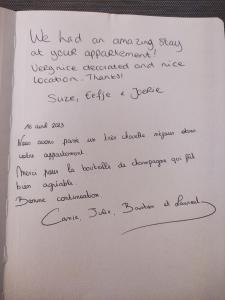 We had an amazing stay
at your appartement!
Very nice decorated and nice
location. Thanks!
Suze, Eefje &
16 avril 2023
Nous avons passé un très chouette séjour dans
votre appartement.
Merci pour la bouteille de champagne qui fut
bien agréable.
Bonne continuation.
Carrie, Julie, Bastien et Laurent